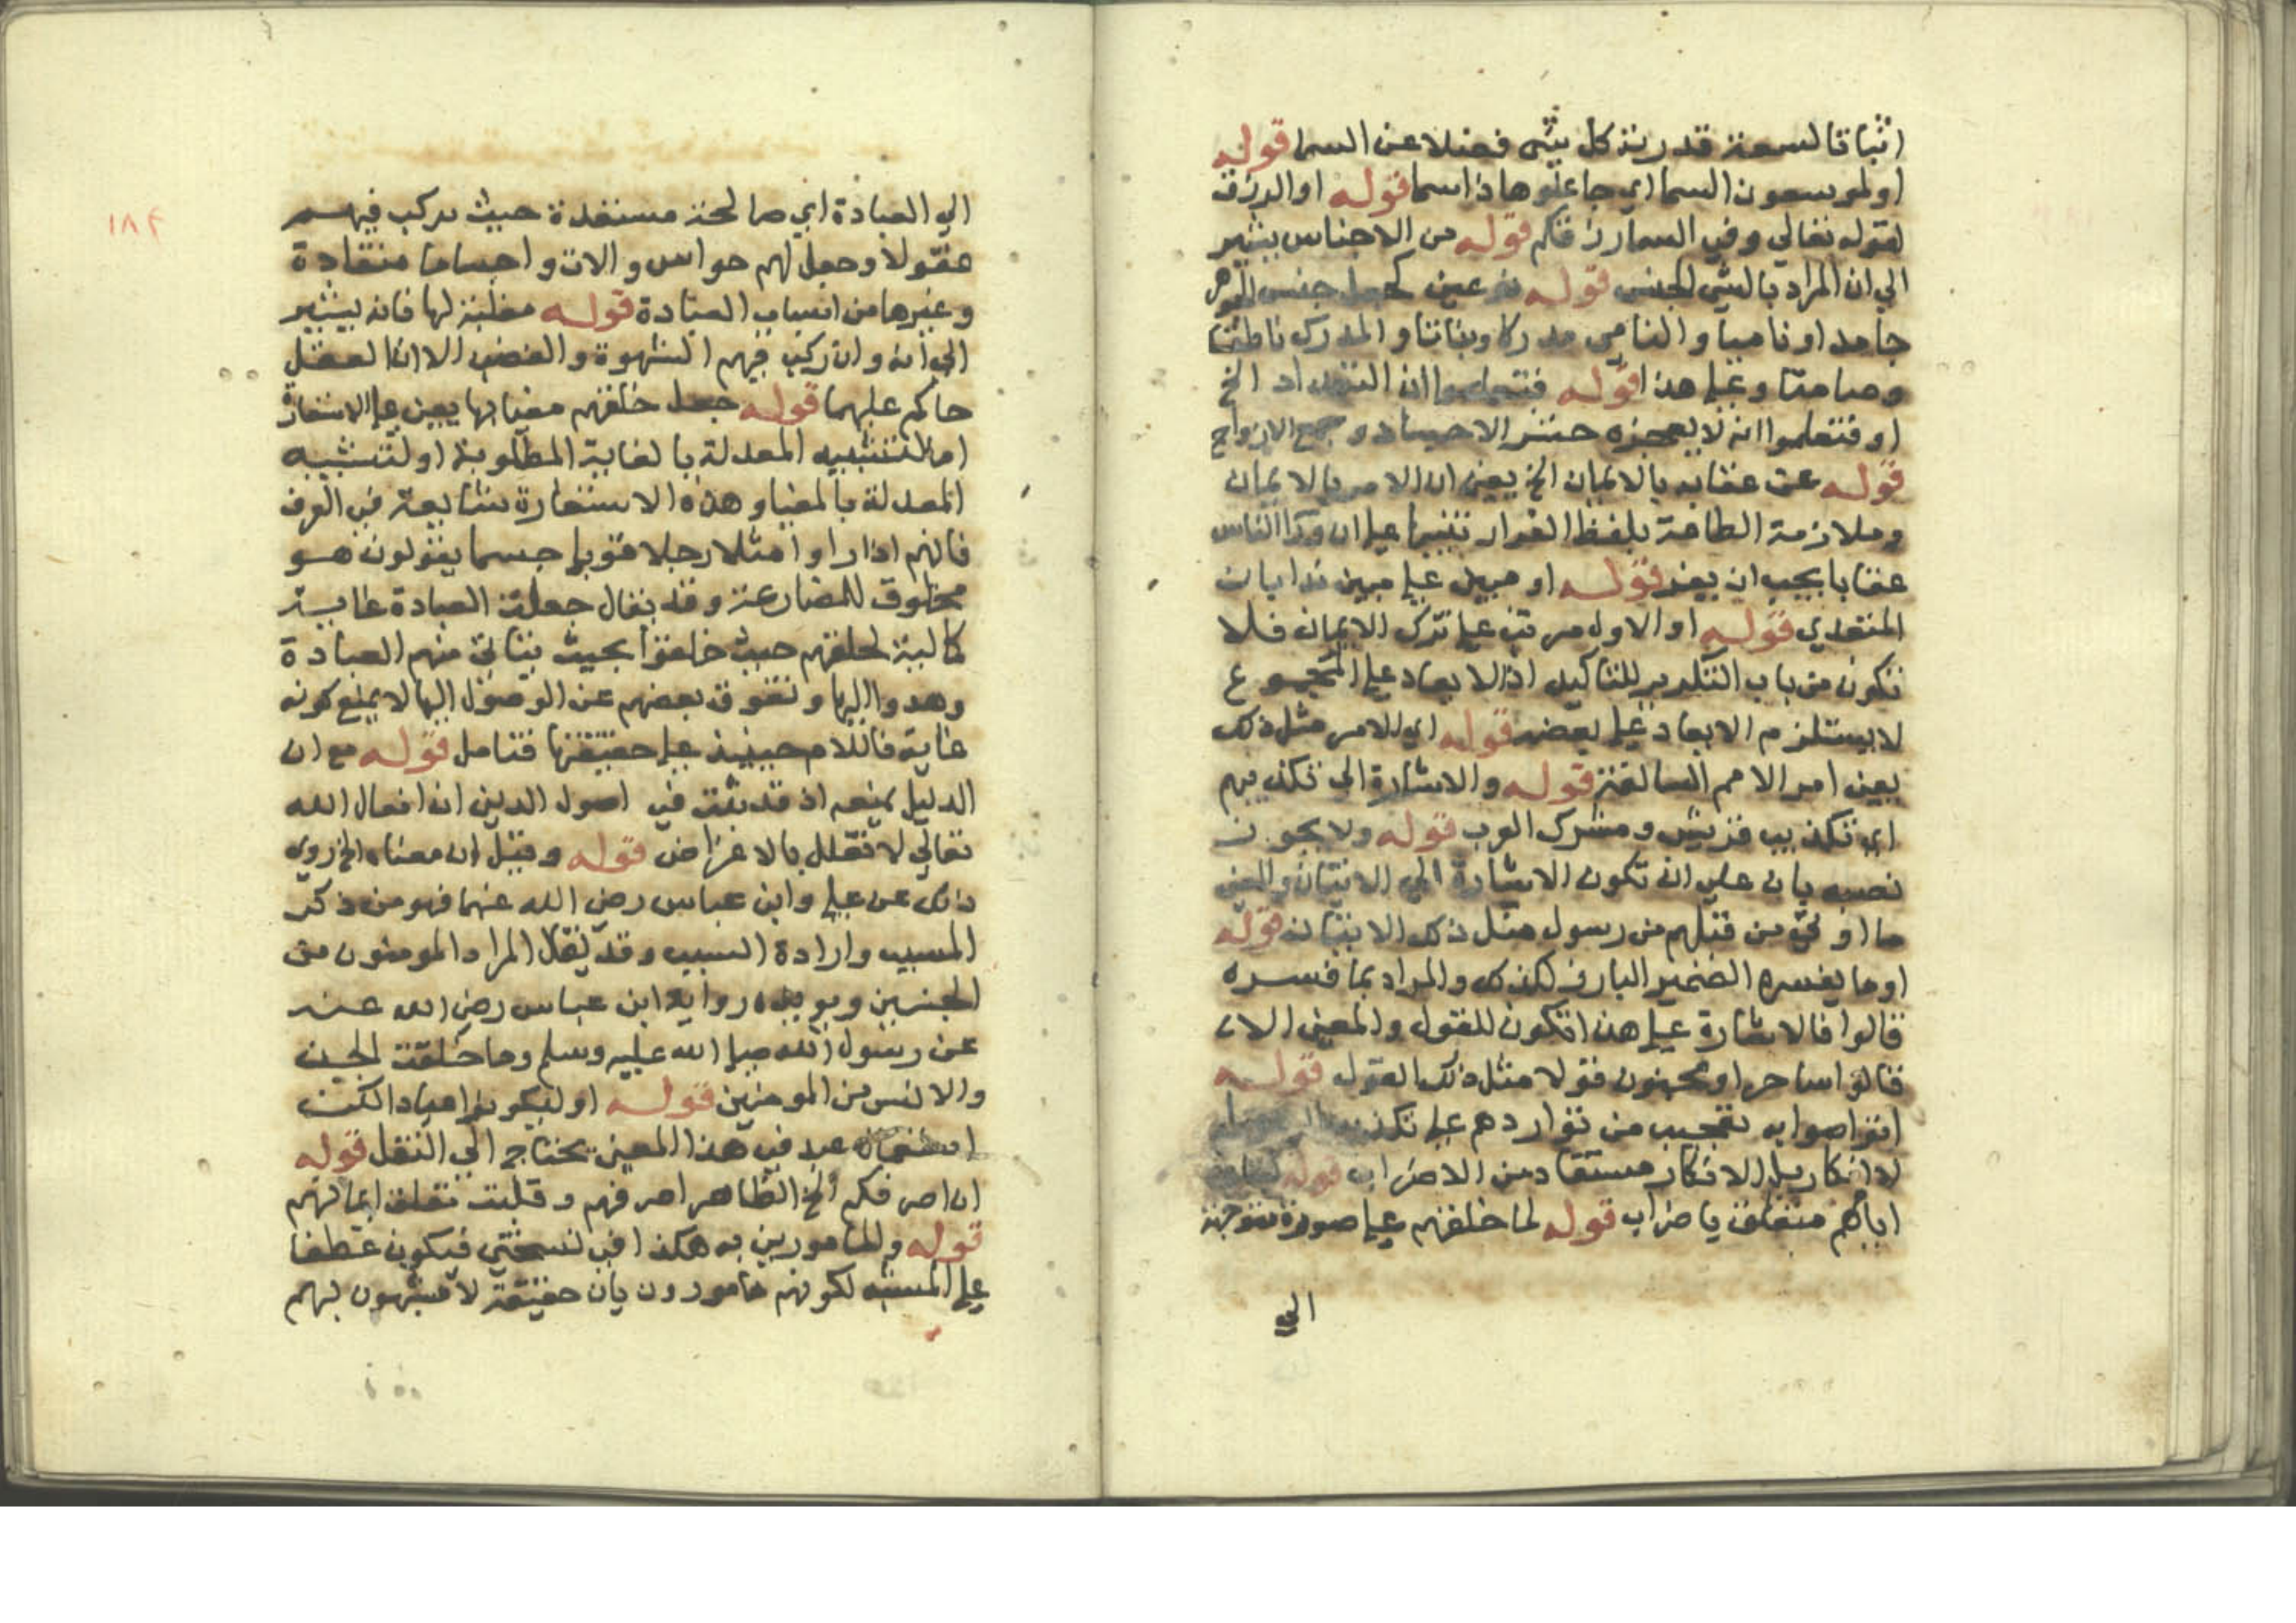 اثباتا لسعة قدرته كل شي فضلا عن السما قوله
او لموسعون السما اي جاعلوها ذا سما قوله او الرزق
لقوله تعالي وفي السما رزقكم قوله من الاجناس يشير
الي ان المراد بالشي الجنس قوله نوعين كجعل جنس الجوهر
جامدا وناميا والنامي مدركا ونباتا والمدرك ناطقا
وصامتا وعلي هذا قوله فتعلموا ان التعداد الخ
او فتعلموا انه لا يعجزه حشر الاجساد وجمع الارواح
قوله عن عقابه بالايمان الخ يعني ان الامر بالايمان
وملازمة الطاعة بلفظ الفرار تنبيها علي ان ورا الناس
عقابا يجب ان يفر قوله او مبين علي مبين من ابان
المتعدي قوله او الاول مرتب علي ترك الايمان فلا
تكون من باب التكرير للتاكيد اذ الابعاد علي المجموع
لا يستلزم الابعاد علي بعضه قوله اي الامر مثل ذلك
يعني امر الامم السالفة قوله والاشارة الي تكذيبهم
اي تكذيب قريش ومشرك العرب قوله ولا يجوز
نصبه يان علي ان تكون الاشارة الي الاتيان والمعني
ما اوتي من قبلهم من رسول مثل ذلك الاتيان قوله
او ما يفسره الضمير البارز لكذلك والمراد بما فسره
قالوا فالاشارة علي هذا تكون للقول والمعني الا
قالوا ساحر او مجنون قولا مثل ذلك القول قوله
اتواصوا به تعجيب من تواردهم علي
لا انكار بل الانكار مستفاد من الاضراب قوله
اياهم متعلق باضراب قوله لما خلقهم علي صورة متوجهة
الي
١٨٤
الي العبادة اي صالحة مستعدة حيث ركب فيهم
عقولا وجعل لهم حواس والات واجساما منقادة
وغيرها من اسباب العبادة قوله مغلبة لها فانه يشير
الي انه وان ركب فيهم الشهوة والغضب الا ان العقل
حاكم عليهما قوله جعل خلقهم مغيا بها يعني علي الاستعارة
اما لتشبيه المعدلة بالغاية المطلوبة او لتشبيه
المعدلة بالمغيا وهذه الاستعارة شايعة في العرف
فانهم اذا راوا مثلا رجلا قويا جسما يقولون هو
مخلوق للمصارعة وقد يقال جعلت العبادة غايية
كالية لخلقهم حيث خلقوا بحيث يتاتي منهم العبادة
وهدوا اليها وتعوق بعضهم عن الوصول اليها لا يمنع كونه
غاية فاللام حينيذ علي حقيقتها فتامل قوله مع ان
الدليل يمنعه اذ قد ثبت في اصول الدين ان افعال الله
تعالي لا تعلل بالاغراض قوله وقيل ان معناه الخ روي
ذلك عن علي وابن عباس رضي الله عنهما فهو من ذكر
المسبب وارادة السبب وقد يقال المراد المومنون من
الجنسين ويويده رواية ابن عباس رضي الله عنه
عن رسول الله صلي الله عليه وسلم وما خلقت الجن
والانس من المومنين قوله او ليكونوا عبادا لكن
استعمال عبد في هذا المعني يحتاج الي النقل قوله
ان اصرفكم الخ الظاهر اصرفهم وقلبت تعلق ايمانهم
قوله وللمامورين به هكذا في نسختي فيكون عطفا
علي المشبه لكونهم مامورون بان حقيقة لا مشبهون بهم